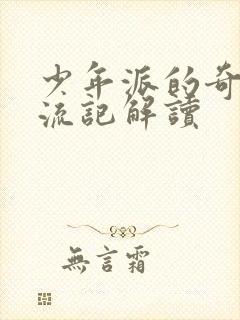 少年派的奇
流記解讀
無言霜